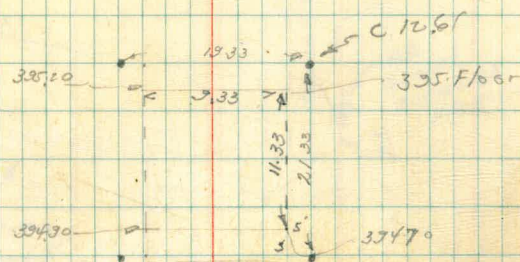 19.33
C 12.61
395.20
395. Floor
9.33
11.33
21.33
5.
394.90
394.70